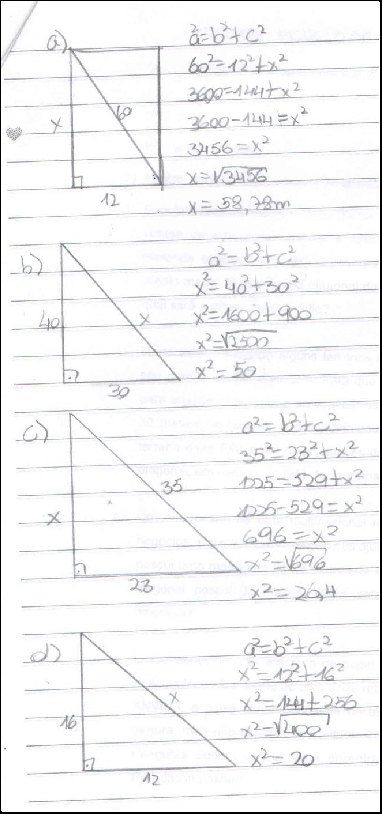 a)
a²=b²+c²
60²=12²+x²
3600=144+x²
3600-144=x²
3456=x²
x=√3456
x=58,78m
x
60
12
b)
a²=b²+c²
x²=40²+30²
x²=1600+900
x²=√2500
x²=50
40
x
30
c)
a²=b²+c²
35²=23²+x²
1225=529+x²
1225-529=x²
696=x²
x²=√696
x²=26,4
35
x
23
d)
a²=b²+c²
x²=12²+16²
x²=144+256
x²=√400
x²=20
x
16
12